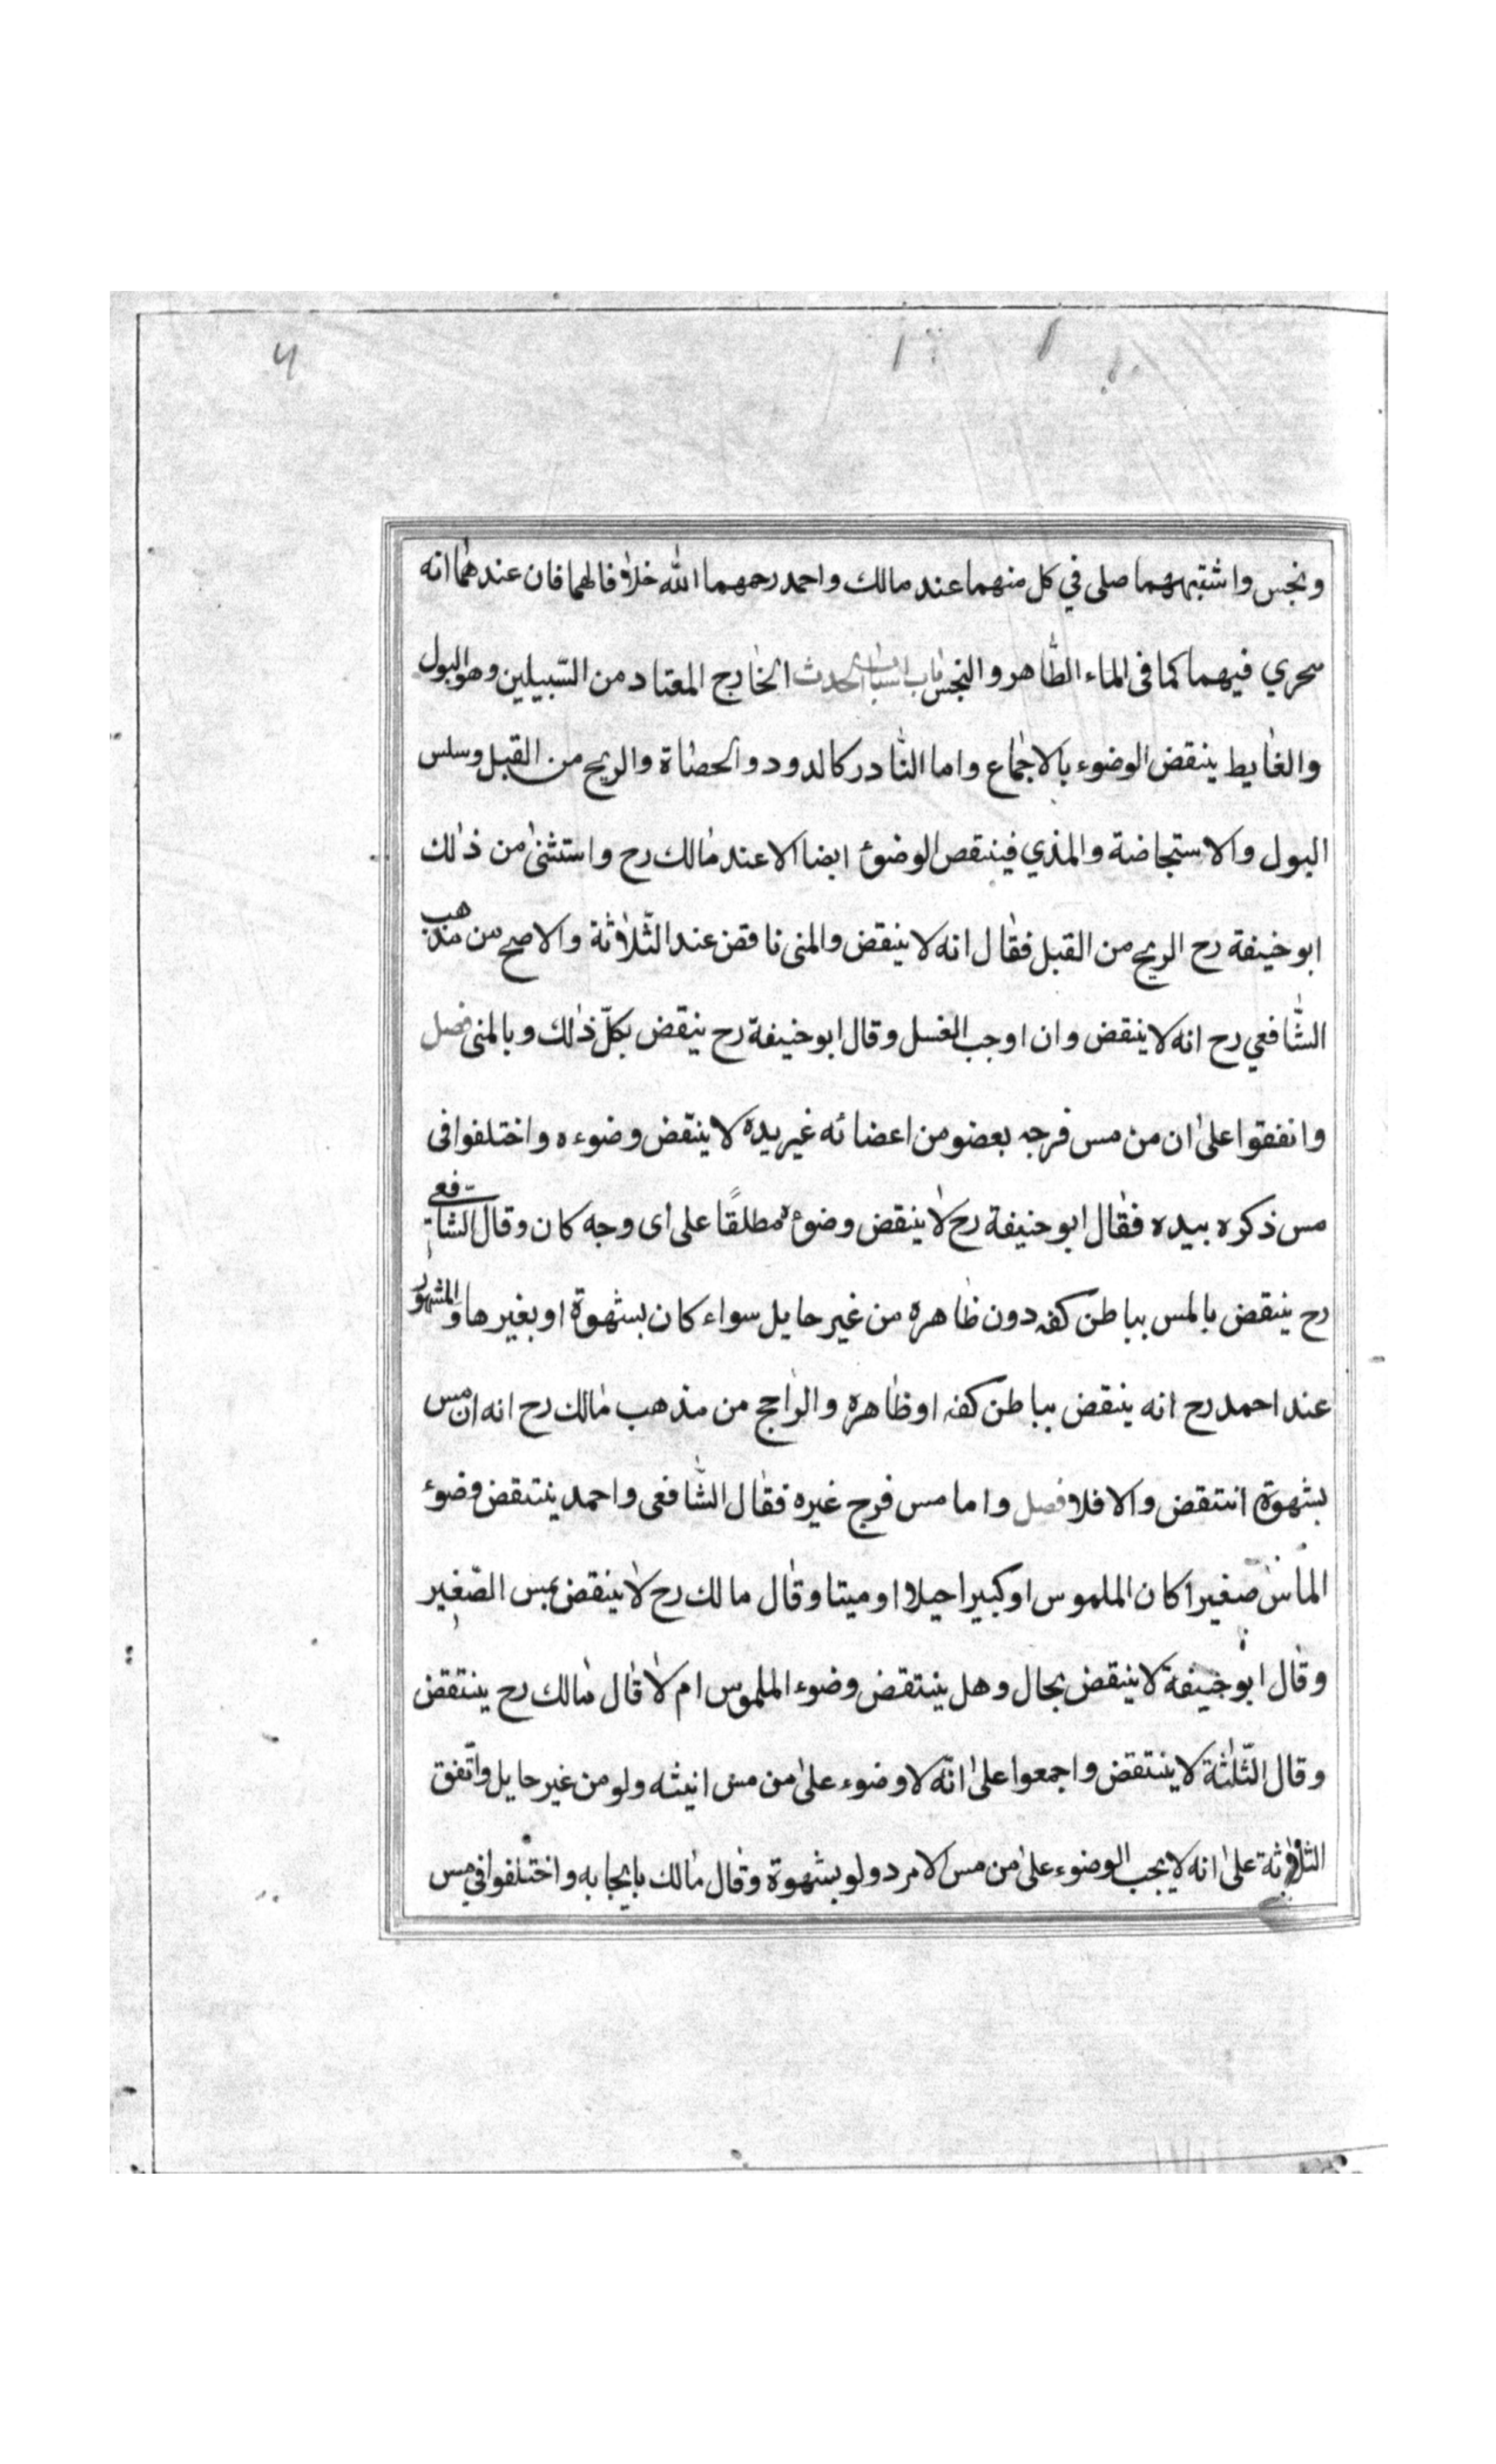 ٦
ونجس واشتبها صلى في كل منهما عند مالك واحمد رحمهما الله خلافا لهما فان عندهما انه
يتحري فيهما كما فى الماء الطاهر والنجس باب اسباب الحدث الخارج المعتاد من السّبيلين وهو البول
والغايط ينقض الوضوء بالاجماع واما النادر كالدود والحصاة والريح من القبل وسلس
البول والاستحاضة والمذي فينتقص الوضوئ ايضا الا عند مالك رح واستثنى من ذلك
ابو حنيفة رح الريح من القبل فقال انه لا ينقض والمنى ناقض عند الثّلاثة والاصح من مذهب
الشافعي رح انه لا ينقض وان اوجب الغسل وقال ابو حنيفة رح ينقض بكلّ ذلك وبالمنى فصل
واتفقوا على ان من مس فرجه بعضو من اعضائه غير يده لا ينتقض وضوءه واختلفوا فى
مس ذكره بيده فقال ابو حنيفة رح لا ينقض وضوئه مطلقًا على اى وجه كان وقال الشافعى
رح ينتقض بالمس بباطن كفه دون ظاهره من غير حايل سواء كان بشهوة او بغيرها والمشهور
عند احمد رح انه ينقض بباطن كفه او ظاهره والراجح من مذهب مالك رح انه ان مس
بشهوة انتقض والا فلا فصل واما مس فرج غيره فقال الشافعى واحمد ينتقض وضوء
الماسّ صغيرا كان الملموس او كبيرا حيا او ميتا وقال مالك رح لا ينقض بمس الصّغير
وقال ابو حنيفة لا ينقض بحال وهل ينتقض وضوء الملموس ام لا قال مالك رح ينتقض
وقال الثّلثة لا ينتقض واجمعوا على انّه لا وضوء على من مس انيثه ولو من غير حايل واتّفق
الثلاثة على انه لا يجب الوضوء على من مس الامرد ولو بشهوة وقال مالك بايجابه واختلفوا في مس